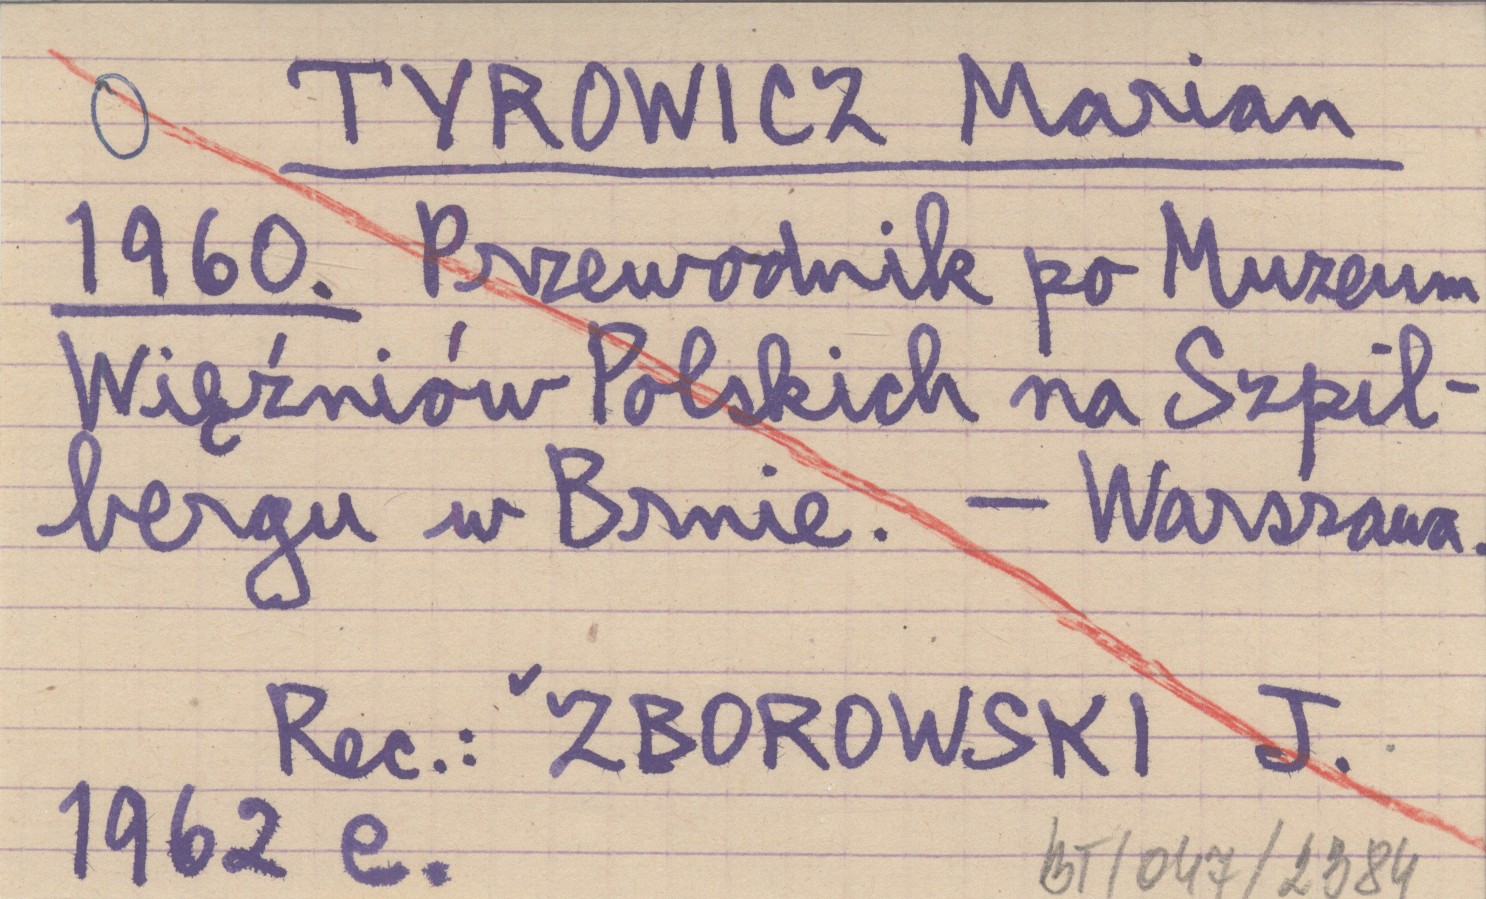 TYROWICZ Marian
1960. Przewodnik po Muzeum
Więźniów Polskich na Szpil-
bergu w Brnie. — Warszawa.
Rec.: ZBOROWSKI J.
1962 e.
BT/047/2384